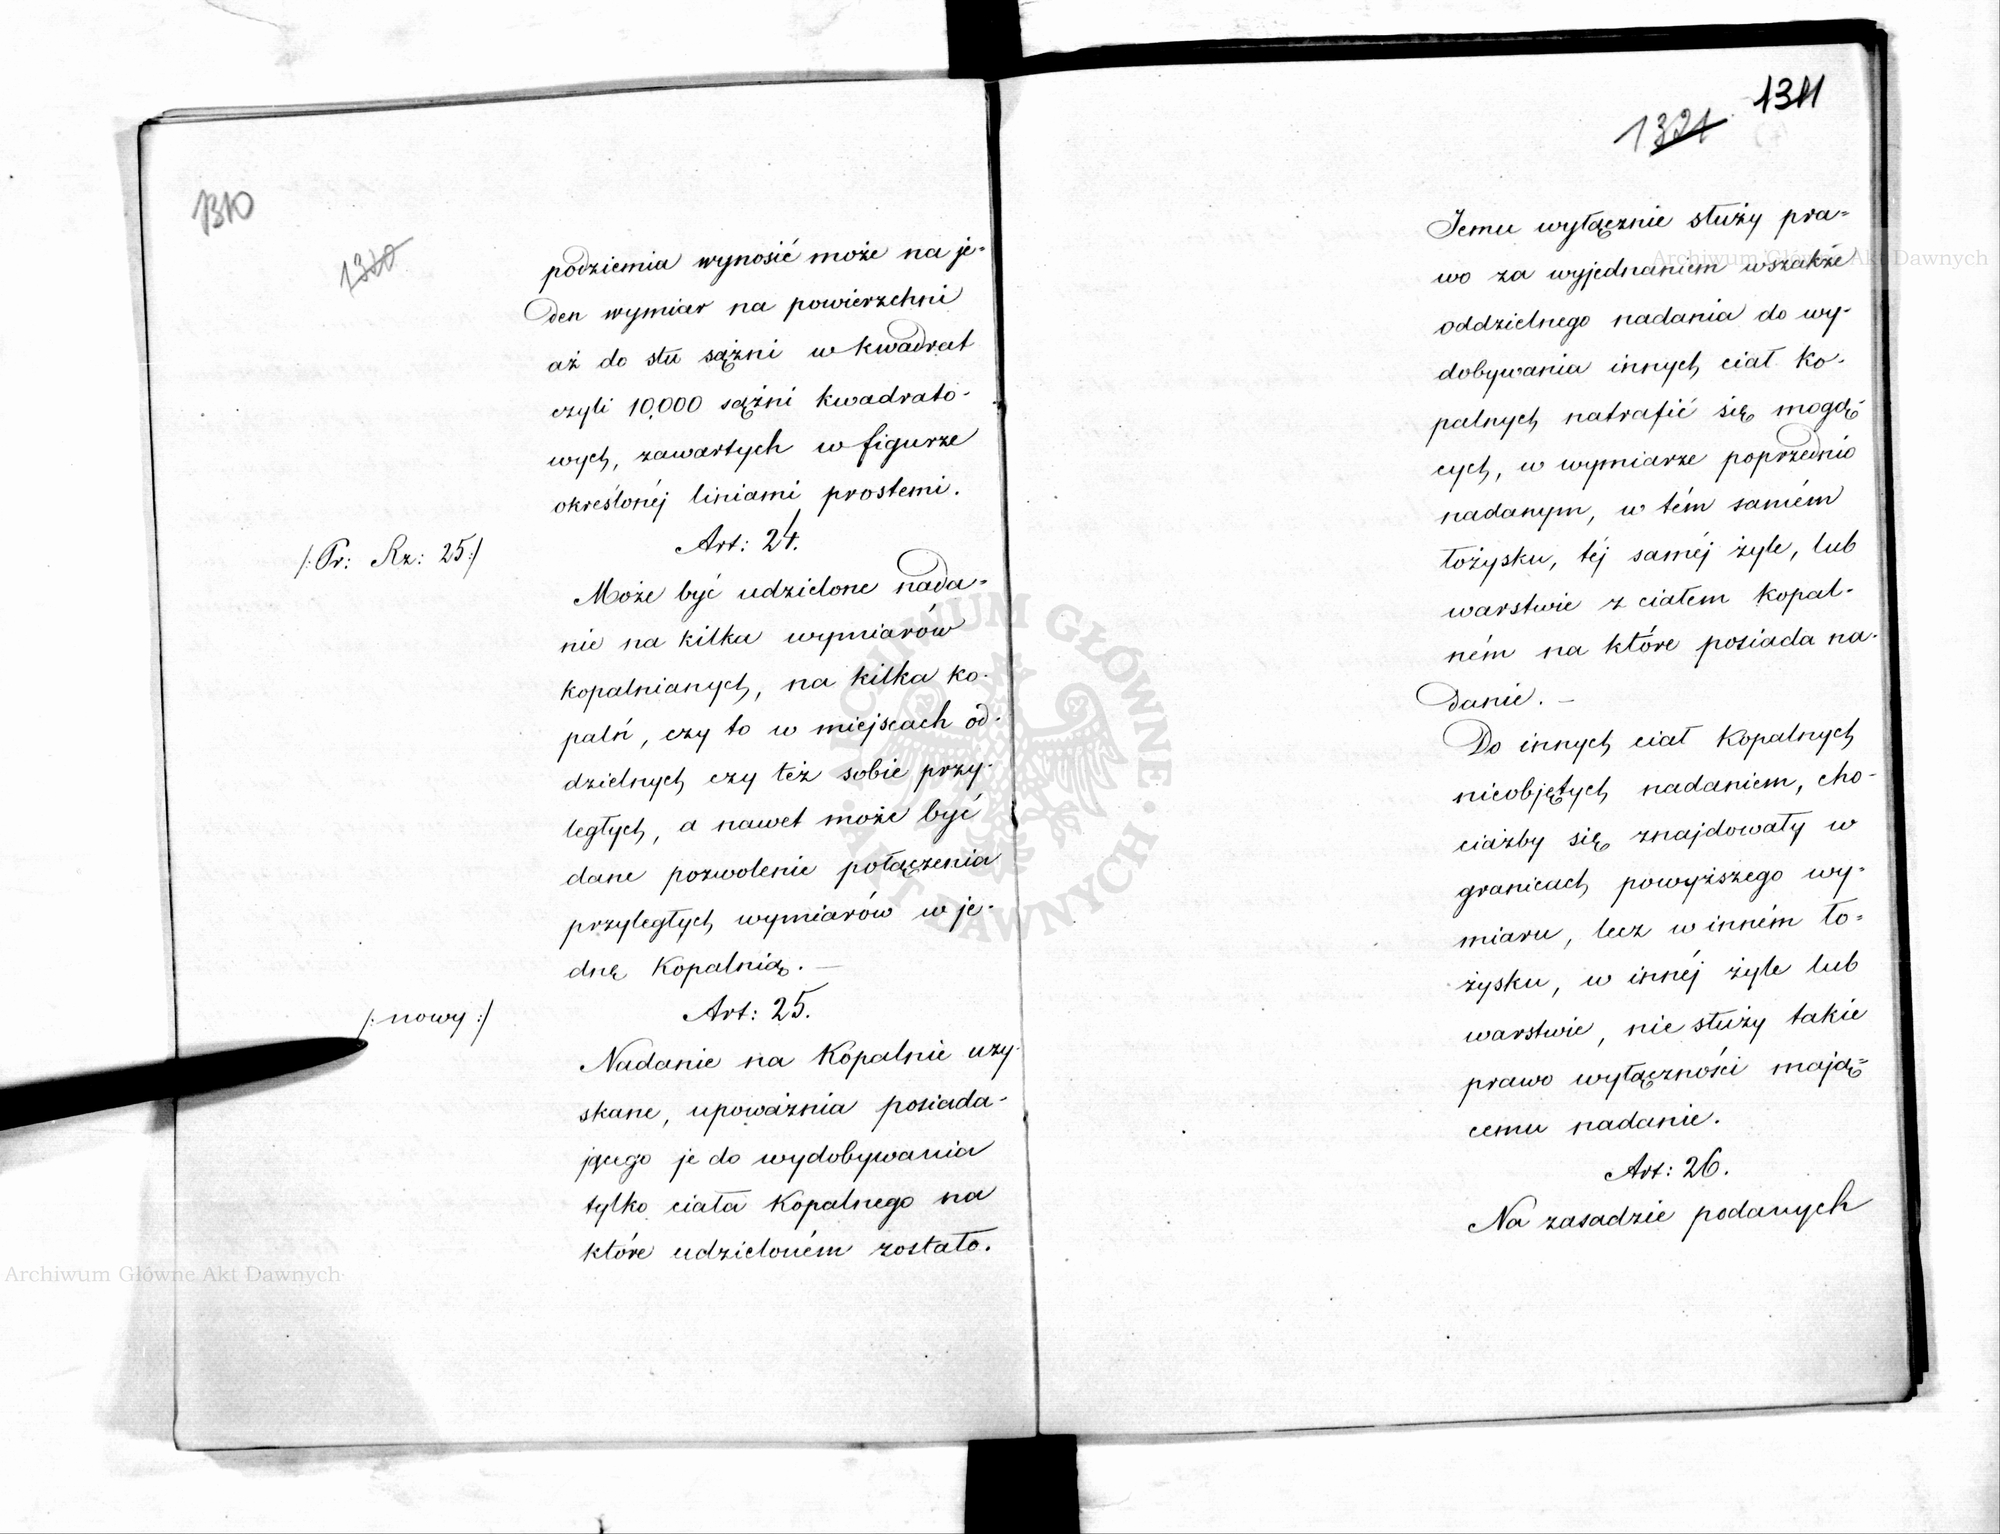 1310
1320
podziemia wynosić może na je-
den wymiar na powierzchni
aż do stu sążni w kwadrat
czyli 10,000 sążni kwadrato-
wych, zawartych w figurze
określonéj liniami prostemi.
/: Pr: Rz: 25:/
Art: 24.
Może być udzielone nada-
nie na kilku wymiarów
kopalnianych, na kilka ko-
palń, czy to w miejscach od-
dzielnych czy też sobie przy-
ległych, a nawet może być
dane pozwolenie połączenia
przyległych wymiarów w je-
dnę Kopalnią. —
/: nowy :/
Art: 25.
Nadanie na Kopalnie uzy-
skane, upoważnia posiada-
jącego je do wydobywania
tylko ciała Kopalnego na
które udzieloném zostało.
1311
1321
Jemu wyłącznie służy pra-
wo za wyjednaniem wszakże
oddzielnego nadania do wy-
dobywania innych ciał Ko-
palnych natrafić się mogą-
cych, w wymiarze poprzednio
nadanym, w tém samém
łożysku, téj saméj żyle, lub
warstwie z ciałem Kopal-
ném na które posiada na-
danie. —
Do innych ciał Kopalnych
nieobjętych nadaniem, cho-
ciażby się znajdowały w
granicach powyższego wy-
miaru, lecz w inném ło-
żysku, w innéj żyle lub
warstwie, nie służy takie
prawo wyłączności mają-
cemu nadanie.
Art: 26.
Na zasadzie podanych
Archiwum Główne Akt Dawnych
Archiwum Główne Akt Dawnych
ARCHIWUM GŁÓWNE · AKT DAWNYCH ·